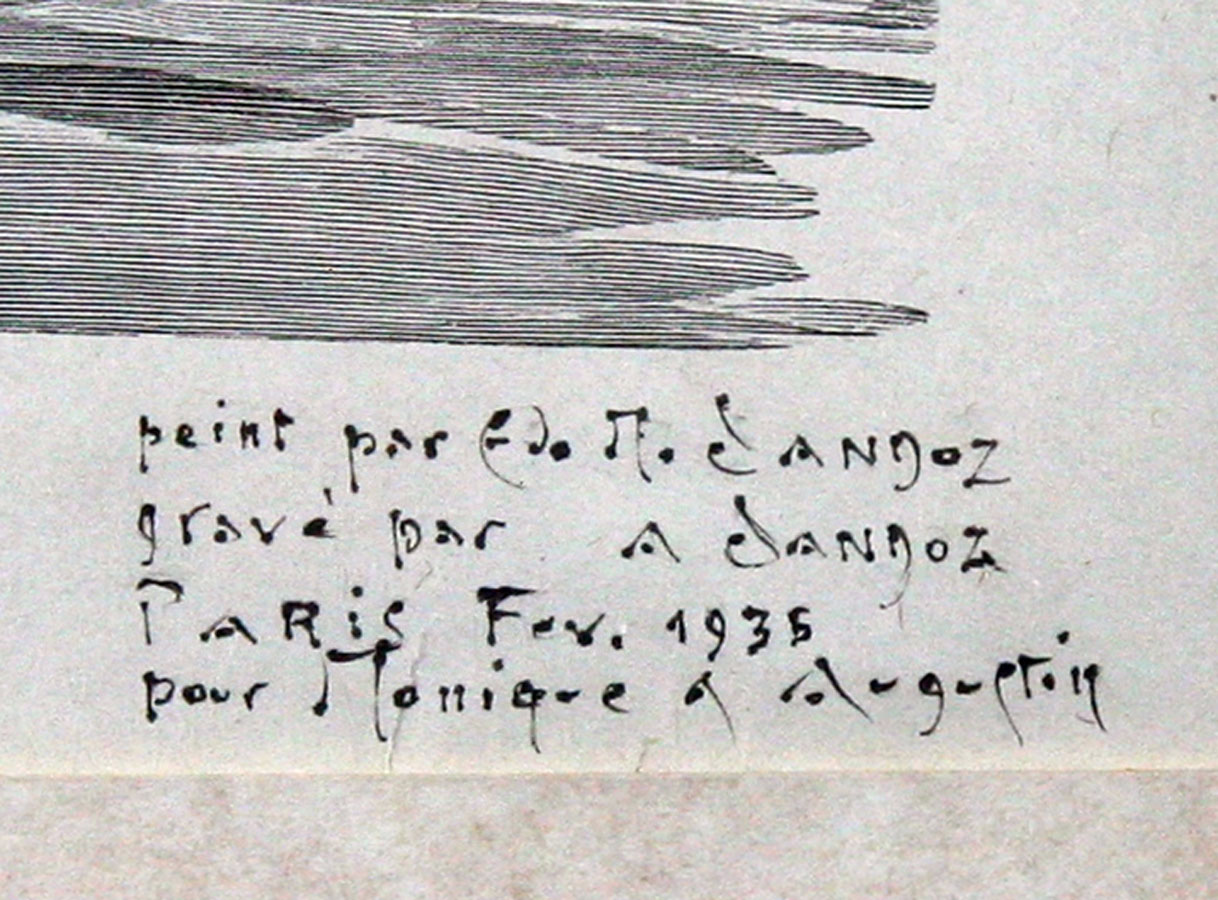 peint par Edo M. SANDOZ
gravé par A SANDOZ
PARIS Fev. 1935
pour Monique & Augustin